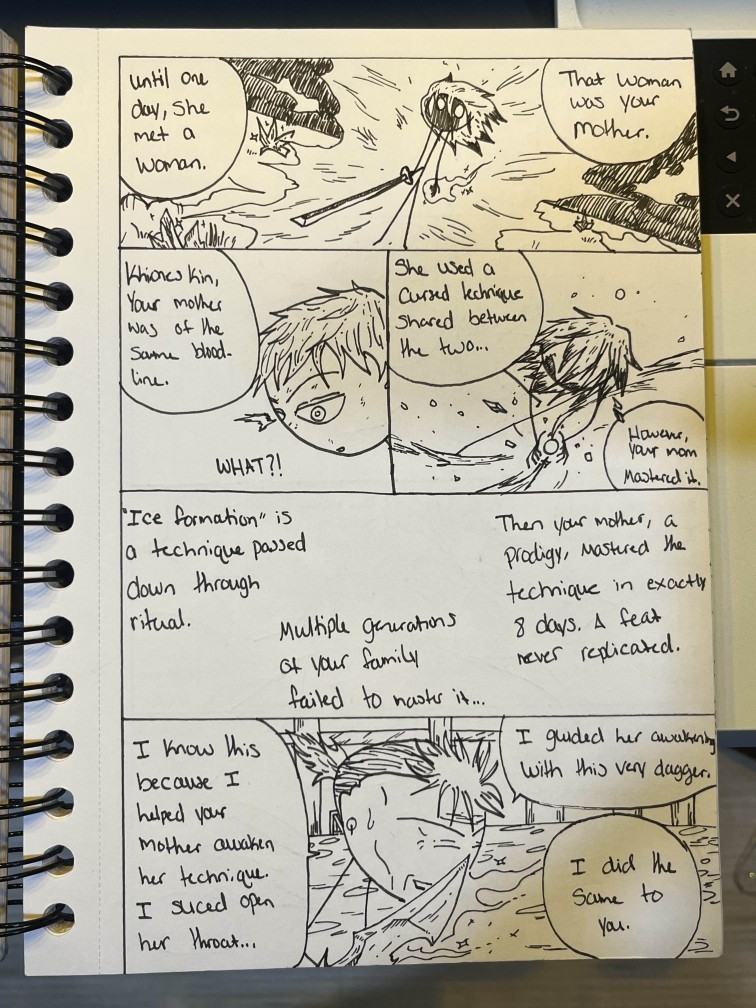 until one
day, she
met a
woman.
That woman
was your
mother.
Khiones kin,
Your mother
was of the
same blood-
line.
WHAT?!
She used a
cursed technique
shared between
the two...
However,
your mom
Mastered it.
"Ice formation" is
a technique passed
down through
ritual.
Multiple generations
of your family
failed to master it...
Then your mother, a
prodigy, mastered the
technique in exactly
8 days. A feat
never replicated.
I know this
because I
helped your
mother awaken
her technique.
I sliced open
her throat...
I guided her awakening
with this very dagger.
I did the
same to
you.